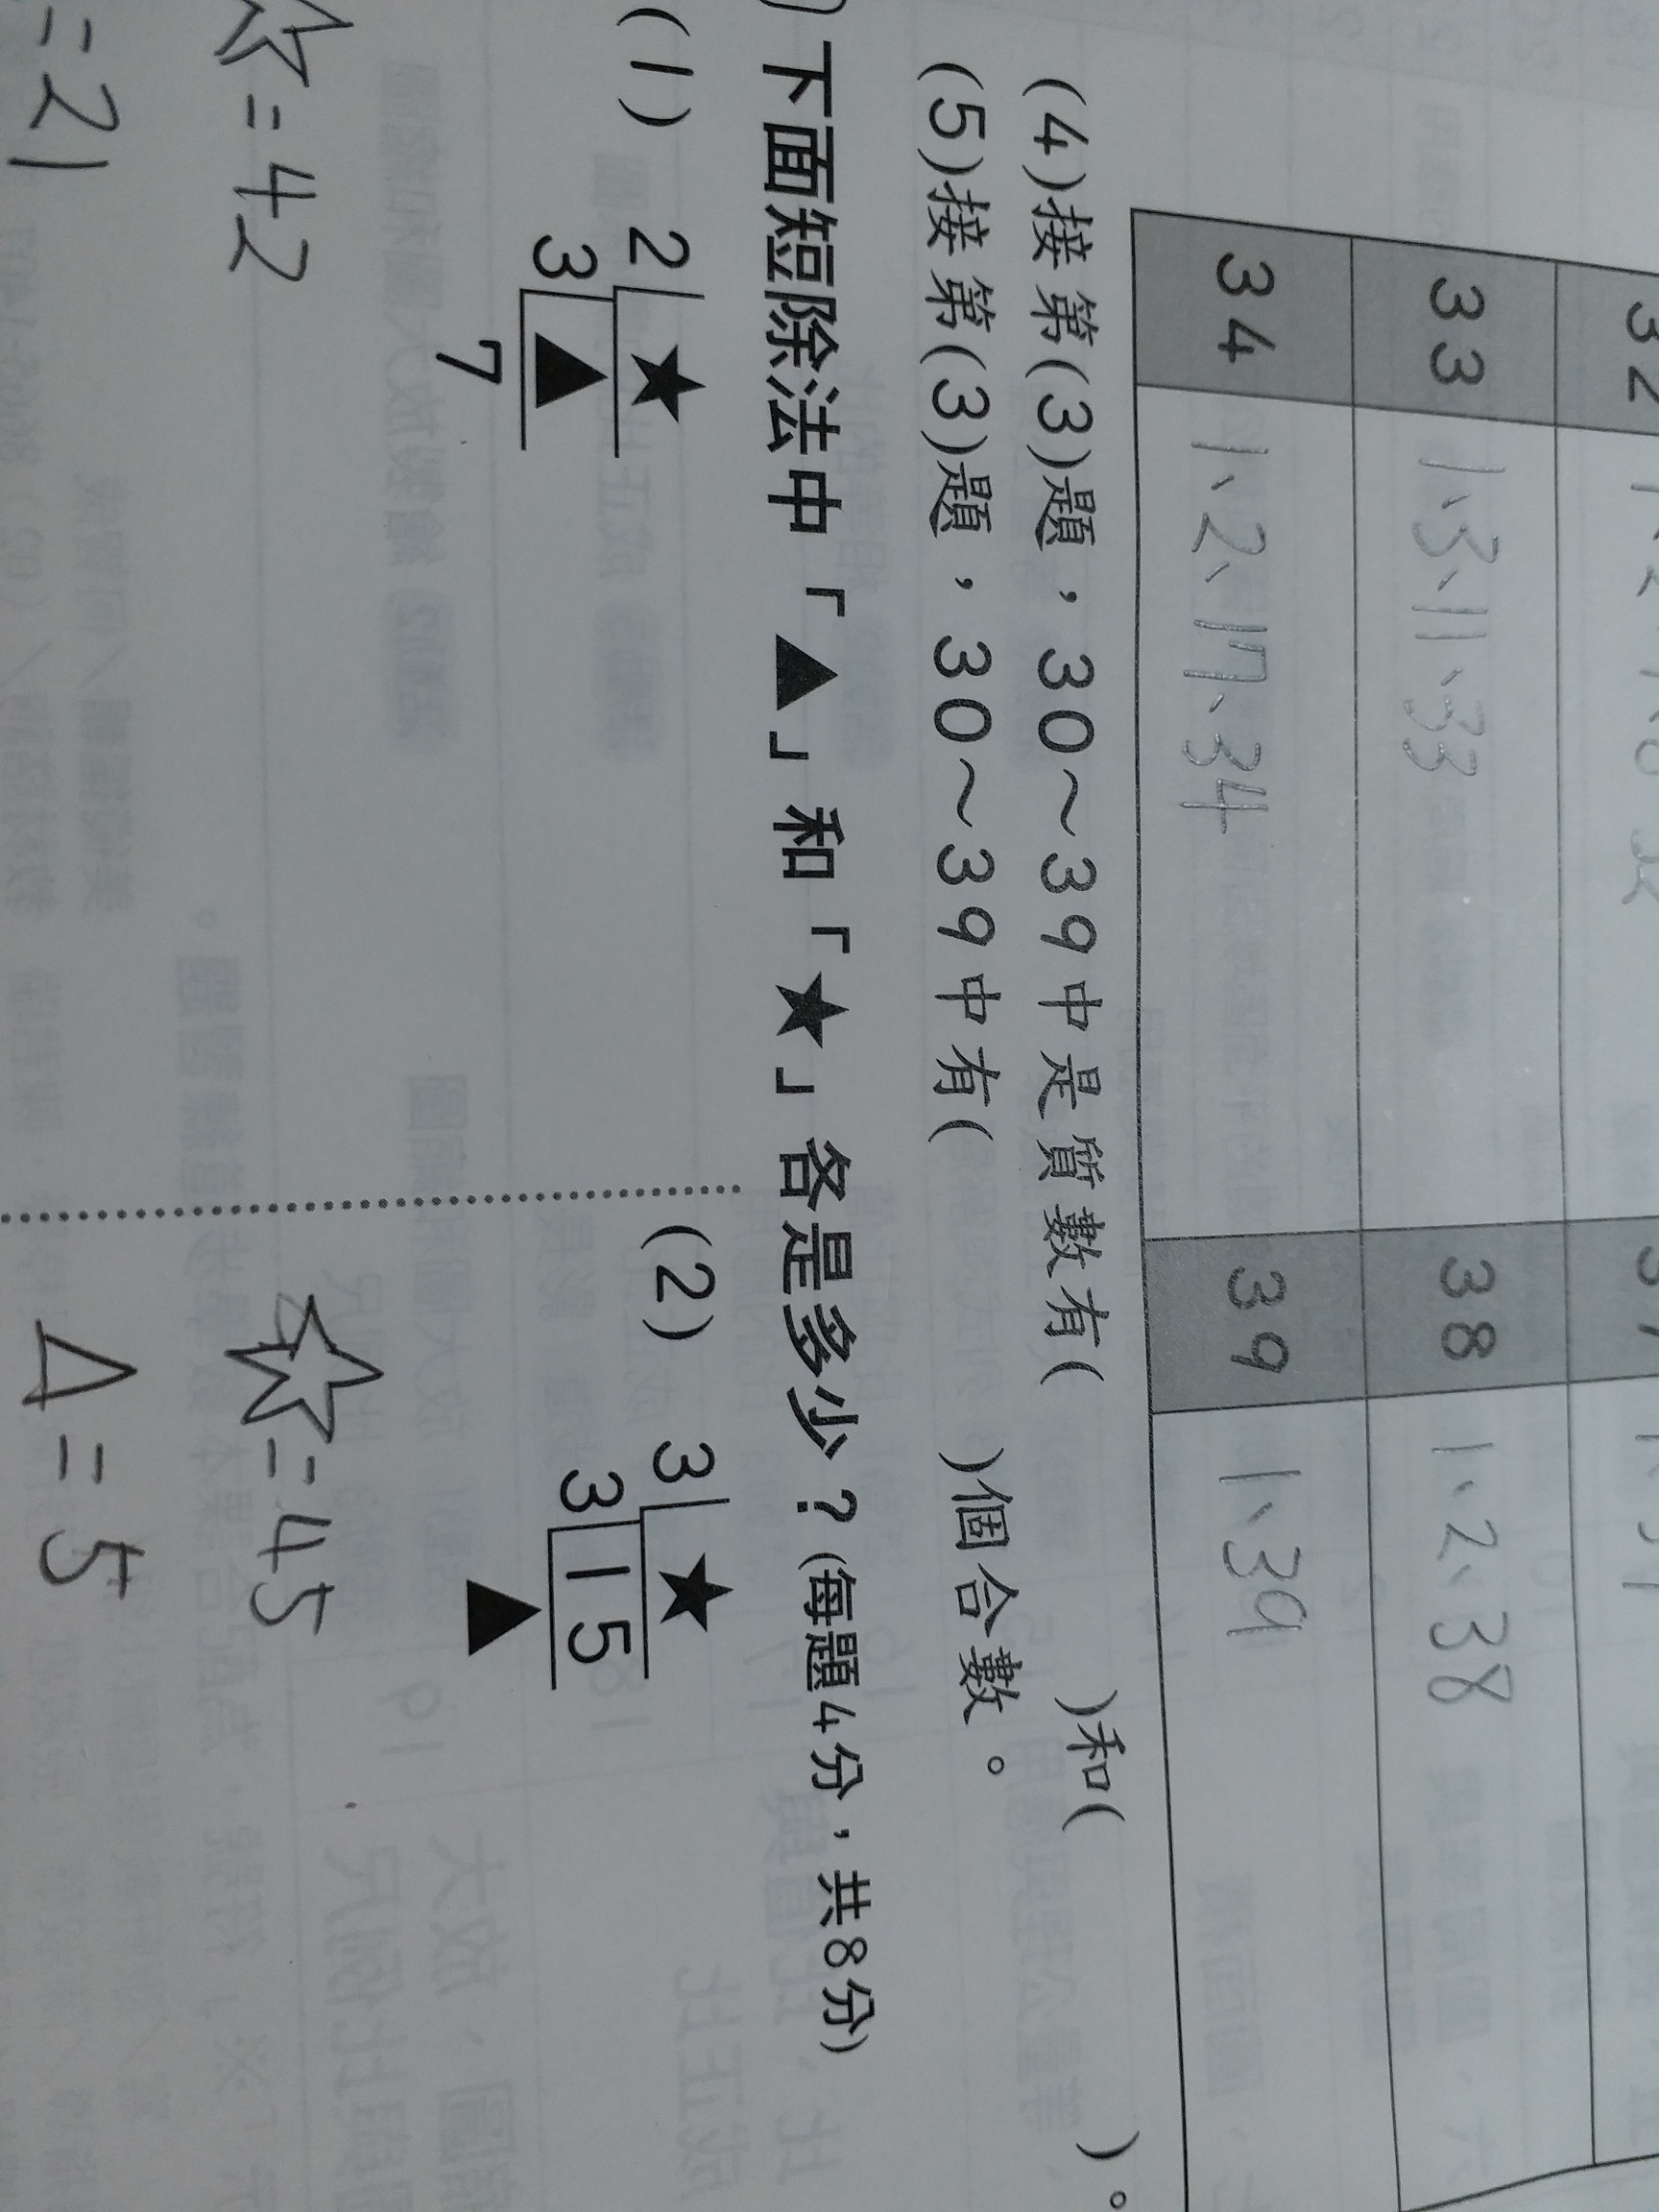 33 1、3、11、33 38 1、2、38
34 1、2、17、34 39 1、39
(4)接第(3)題，30～39中是質數有( )和( )。
(5)接第(3)題，30～39中有( )個合數。
下面短除法中「▲」和「★」各是多少？(每題4分，共8分)
(1) 2 ★
3 ▲
7
☆=42
=21
(2) 3 ★
3 15
▲
☆=45
△=5